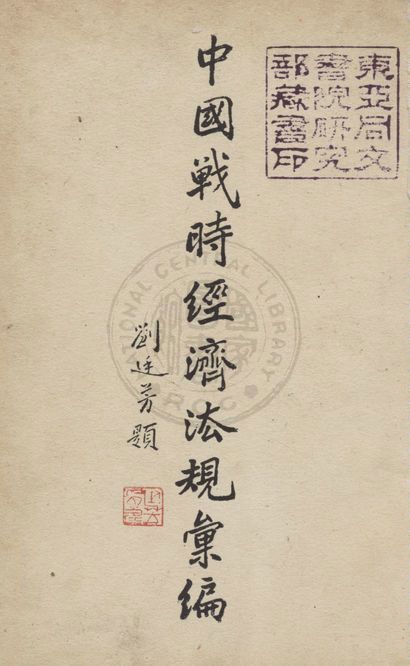 東亞同文
書院研究
部藏書印
中國戰時經濟法規彙編
劉廷芳題
NATIONAL CENTRAL LIBRARY
R.O.C.